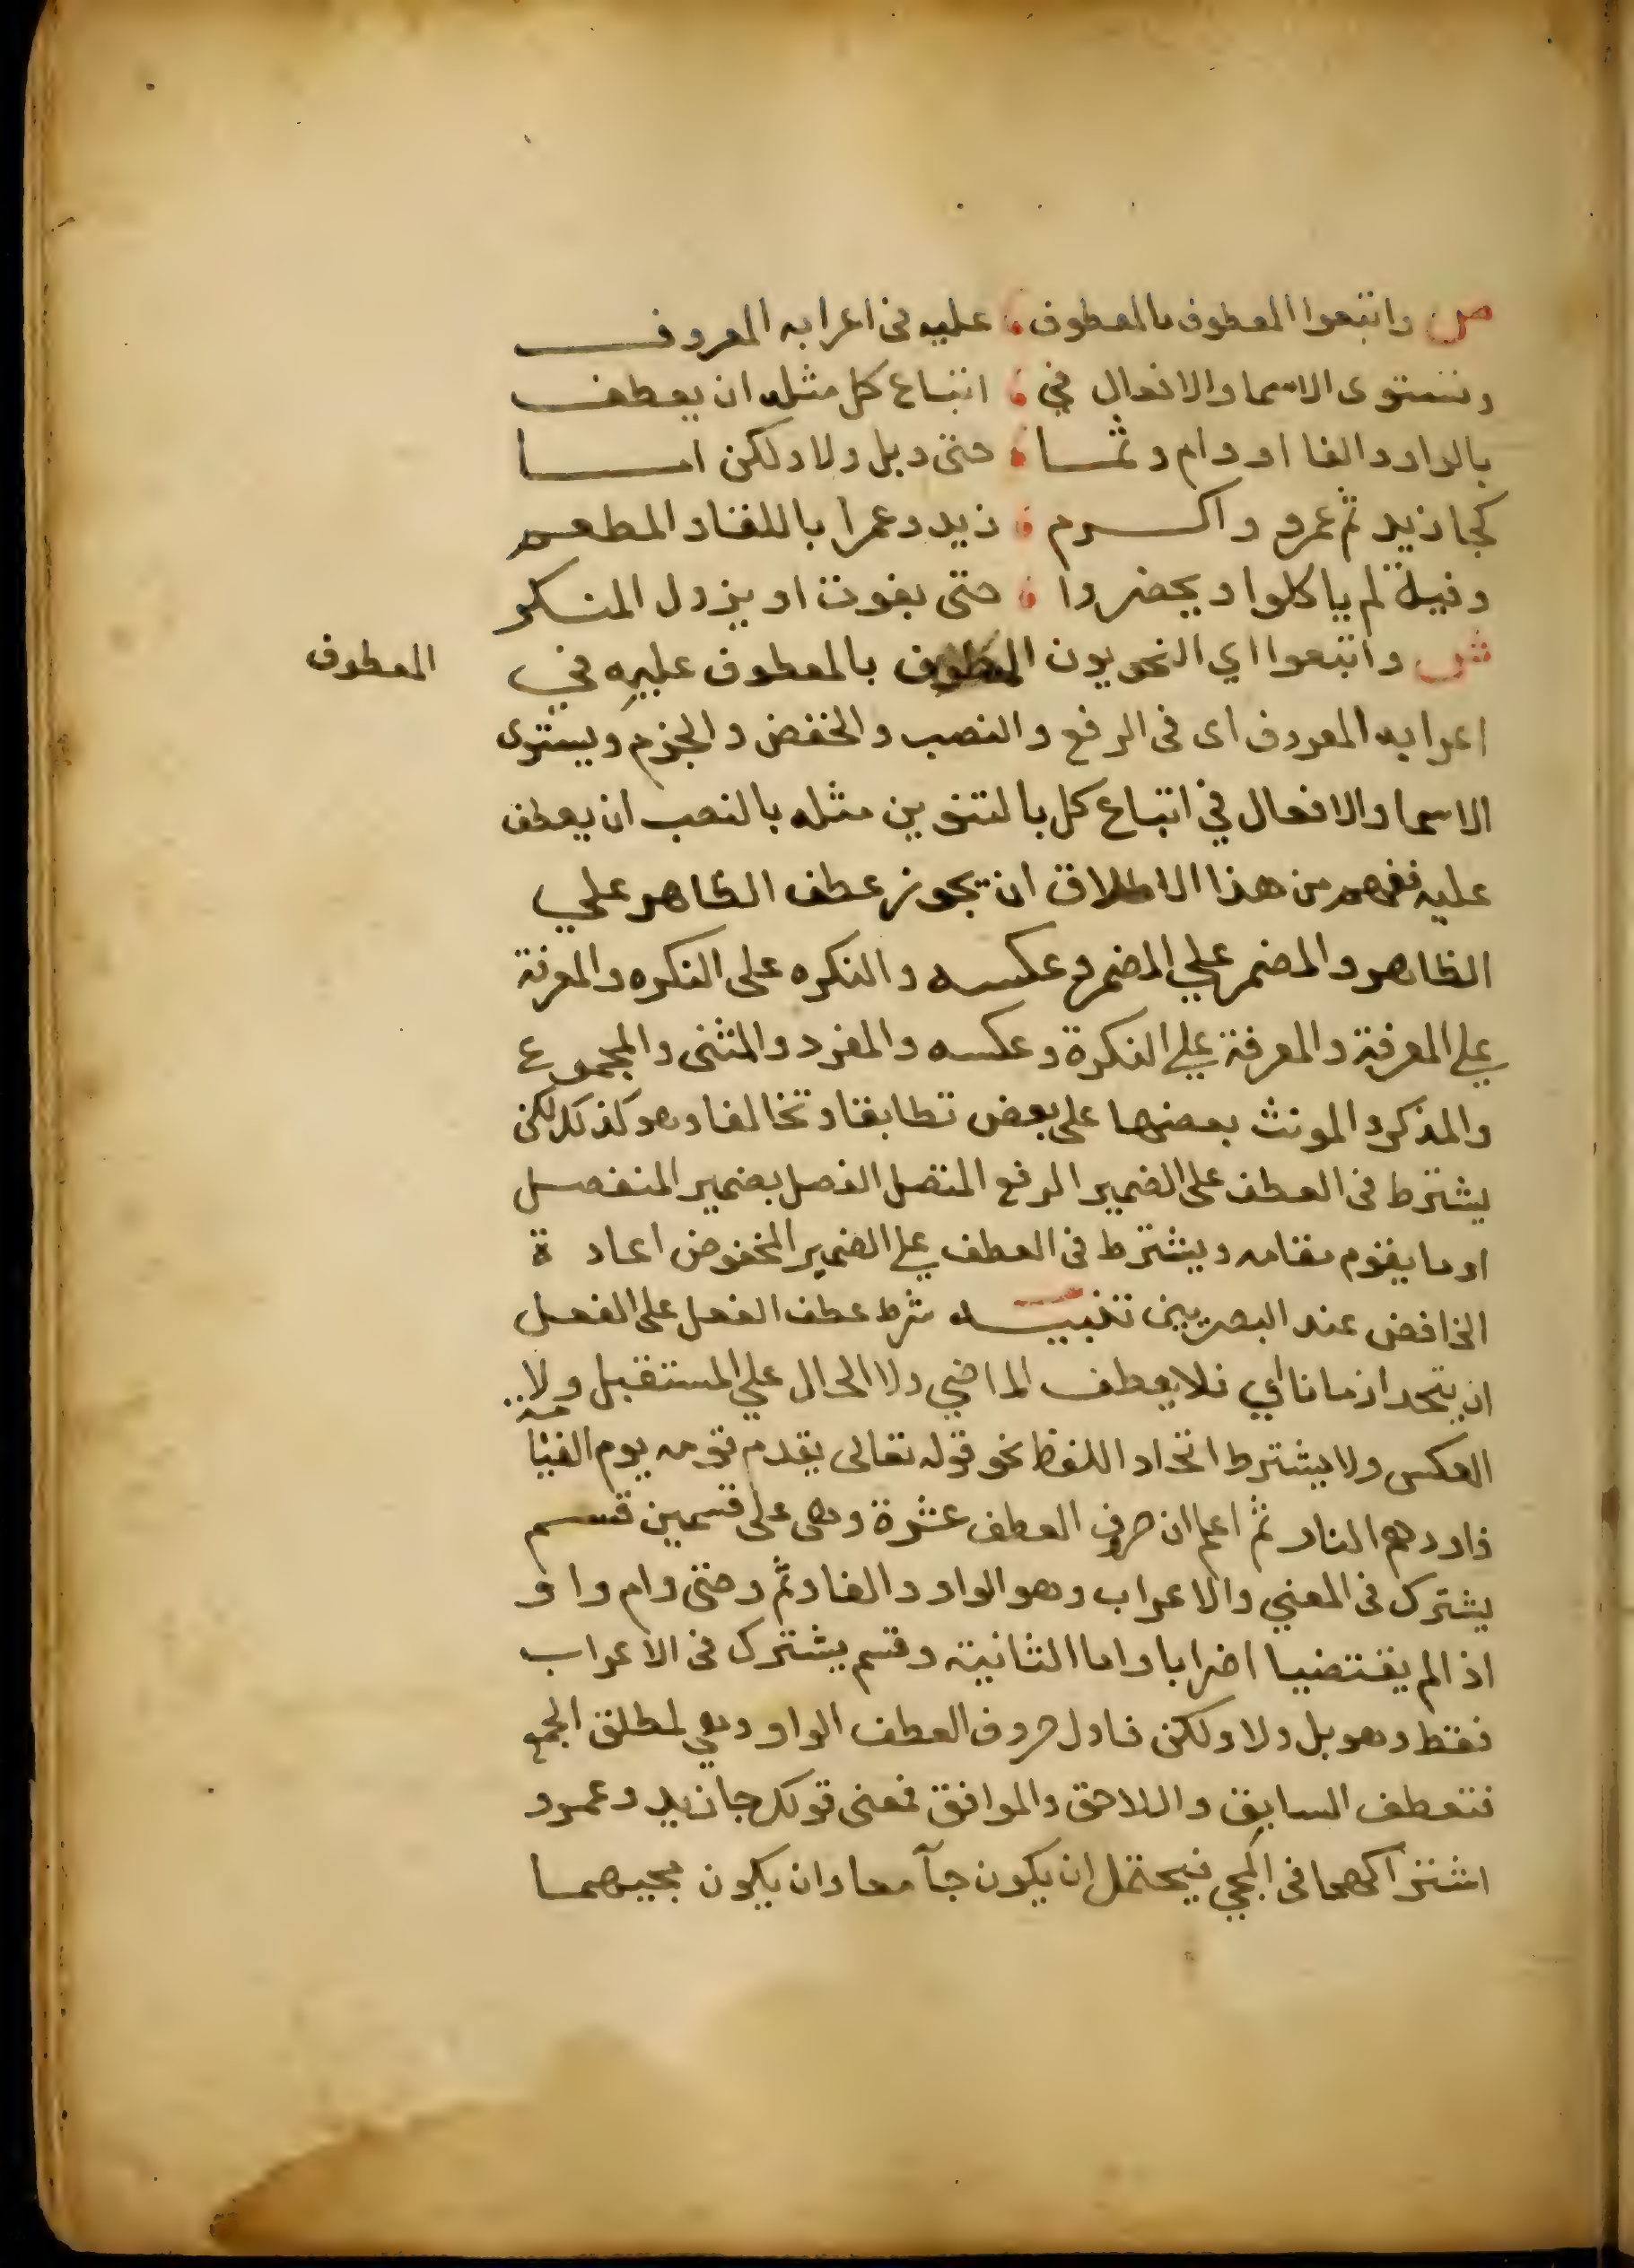 ص واتبعوا المعطوف بالمعطوف عليه فى اعرابه المعروف
وتستوى الاسما والافعال في اتباع كل مثله ان يعطف
بالواو والفا او وام وثما حتى وبل ولا ولكن اما
كجا زيد ثم عمرو واكرم زيد وعمرا باللقا والمطعم
وفية لم ياكلوا ويحضروا حتى يفوت او يزول المنكر
ش واتبعوا اي النحويون المعطوف بالمعطوف عليه في
المعطوف
اعرابه المعروف اى فى الرفع والنصب والخفض والجزم ويستوى
الاسما والافعال في اتباع كل بالتنوين مثله بالنصب ان يعطف
عليه ففهم من هذا الاطلاق ان يجوز عطف الظاهر علي
الظاهر والمضمر علي المضمر وعكسه والنكره على النكره والمعرفة
علي المعرفة والمعرفة علي النكرة وعكسه والمفرد والمثنى والمجموع
والمذكر والمونث بعضها على بعض تطابقا وتخالفا وهو كذلك لكن
يشترط فى العطف على الضمير الرفع المتصل الفصل بضمير المنفصل
او ما يقوم مقامه ويشترط فى العطف علي الضمير المخفوض اعادة
الخافض عند البصريين تنبيه شرط عطف الفعل على الفعل
ان يتحد ازمانا اي فلا يعطف الماضي ولا الحال علي المستقبل ولا
العكس ولا يشترط اتحاد اللفظ نحو قوله تعالى يقدم قومه يوم القيامة
فاوردهم النار ثم اعلم ان حروف العطف عشرة وهى على قسمين قسم
يشترك فى المعني والاعراب وهو الواو والفا وثم وحتى وام واو
اذا لم يقتضيا اضرابا واما الثانية وقسم يشترك فى الاعراب
فقط وهو بل ولا ولكن فاول حروف العطف الواو وهي لمطلق الجمع
فتعطف السابق واللاحق والموافق فمعنى قولك جا زيد وعمرو
اشتراكهما فى المجي فيحتمل ان يكون جآ معا وان يكون مجيهما